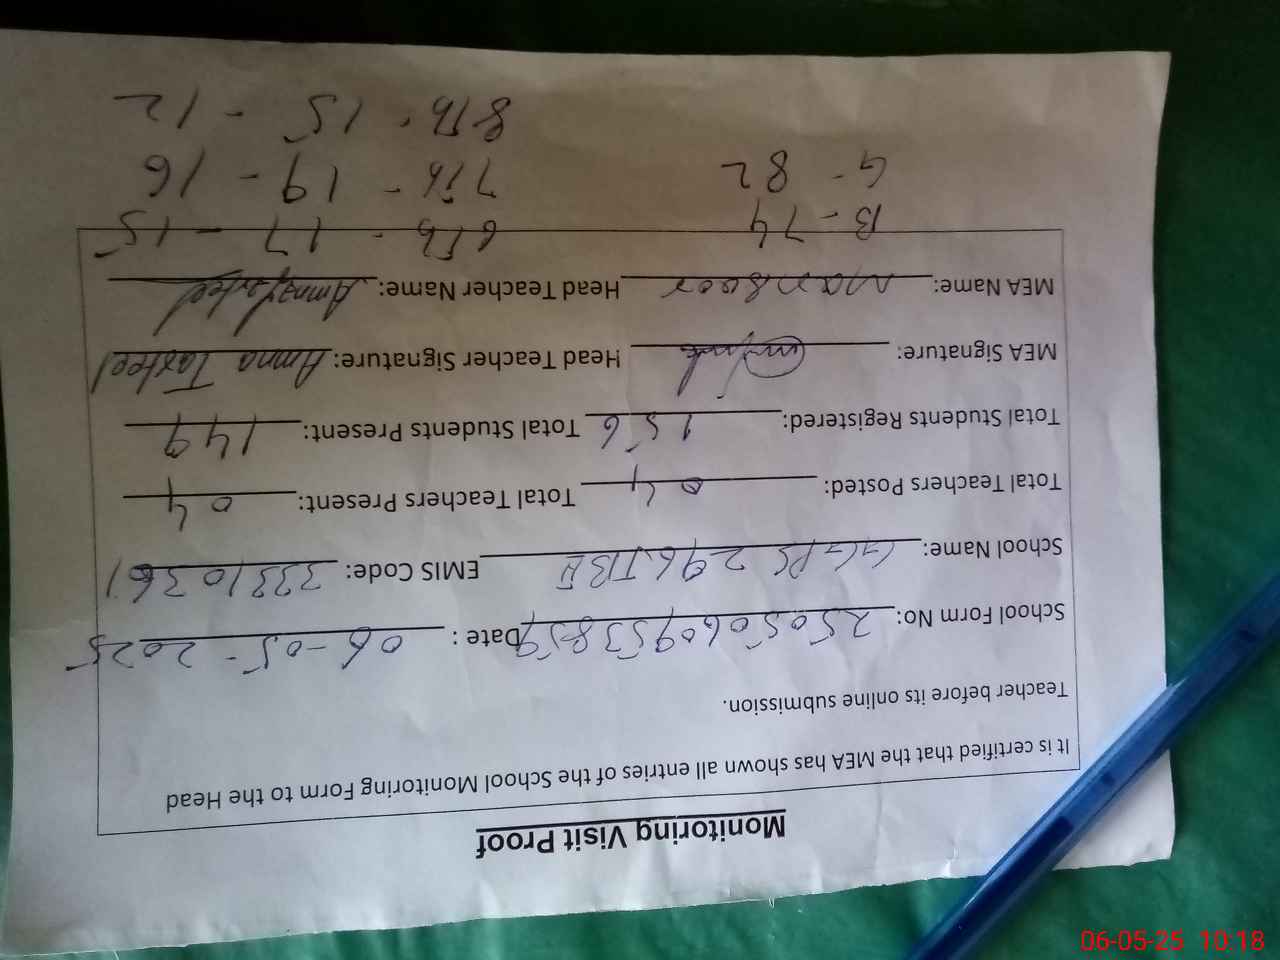 Monitoring Visit Proof
It is certified that the MEA has shown all entries of the School Monitoring Form to the Head
Teacher before its online submission.
School Form No: 2505060953859 Date : 06-05-2025
School Name: GGPS 296JB II EMIS Code: 33310361
Total Teachers Posted: 04 Total Teachers Present: 04
Total Students Registered: 156 Total Students Present: 149
MEA Signature: Head Teacher Signature: Amna
MEA Name: Manzoor Head Teacher Name: Amna
B - 74 6th - 17 - 15
G - 82 7th - 19 - 16
8th - 15 - 12
06-05-25 10:18